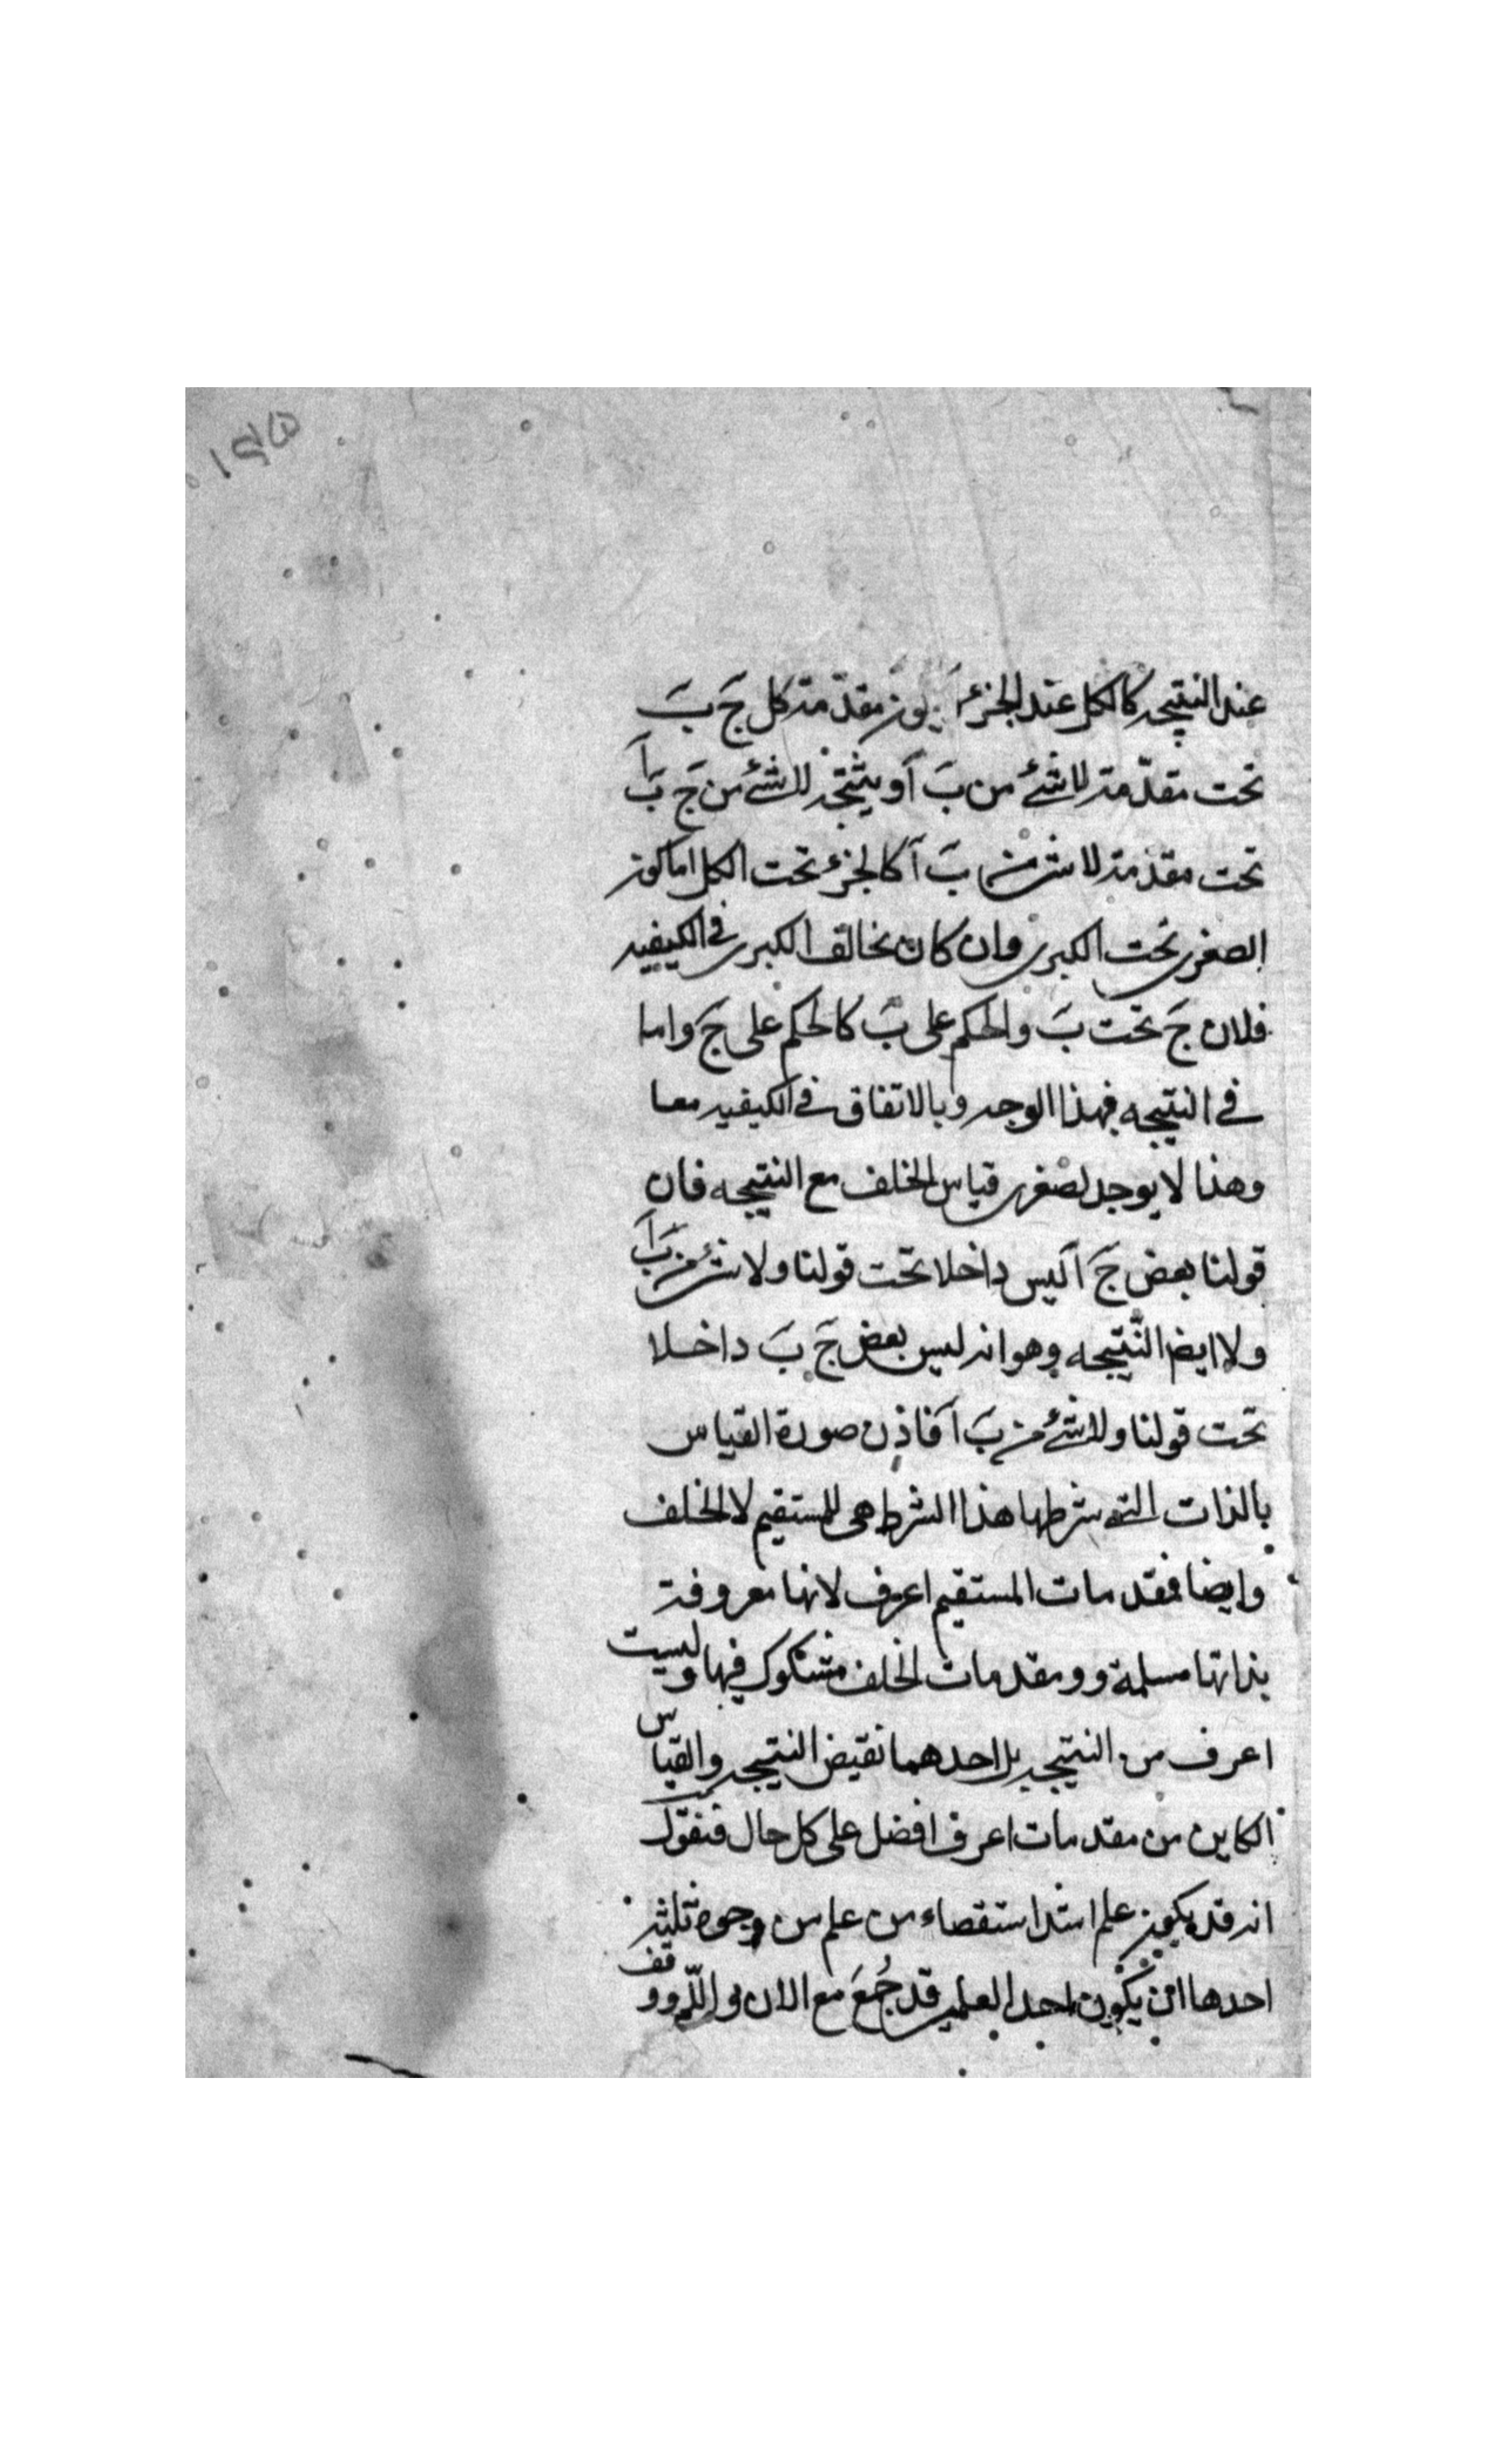 عند النتيجه كالكل عند الجزء مقدمة كل جَ بَ
تحت مقدّمة لا شئ من بَ آ و نتيجة لا شئ من جَ بَ آ
تحت مقدمة لا شئ من بَ آ كالجزء تحت الكل اما كون
الصغرى تحت الكبرى وان كان تخالف الكبرى فى الكيفيه
فلان جَ تحت بَ والحكم على بَ كالحكم على جَ واما
فى النتيجه فبهذا الوجه وبالاتفاق فى الكيفيه معا
وهذا لا يوجد لصغرى قياس الخلف مع النتيجه فان
قولنا بعض جَ آ ليس داخلا تحت قولنا ولا شئ من بَ آ
ولا ايضا النّتيجه وهو انه ليس بعض جَ بَ داخلا
تحت قولنا ولا شئ من بَ آ فاذن صورة القياس
بالذات التى شرطها هذا الشرط هى للمستقيم لا الخلف
وايضا فمقدمات المستقيم اعرف لانها معروفة
بذاتها مسلمة وو مقدمات الخلف مشكوك فيها وليست
اعرف من النتيجه بل احدهما نقيض النتيجه والقياس
الكاين من مقدمات اعرف افضل على كل حال فنقول
انه قد يكون علم اشد استقصاء من علم من وجوه ثلثه
احدها ان يكون احد العلمين قد جُمعَ مع الان و اللّم وو قف